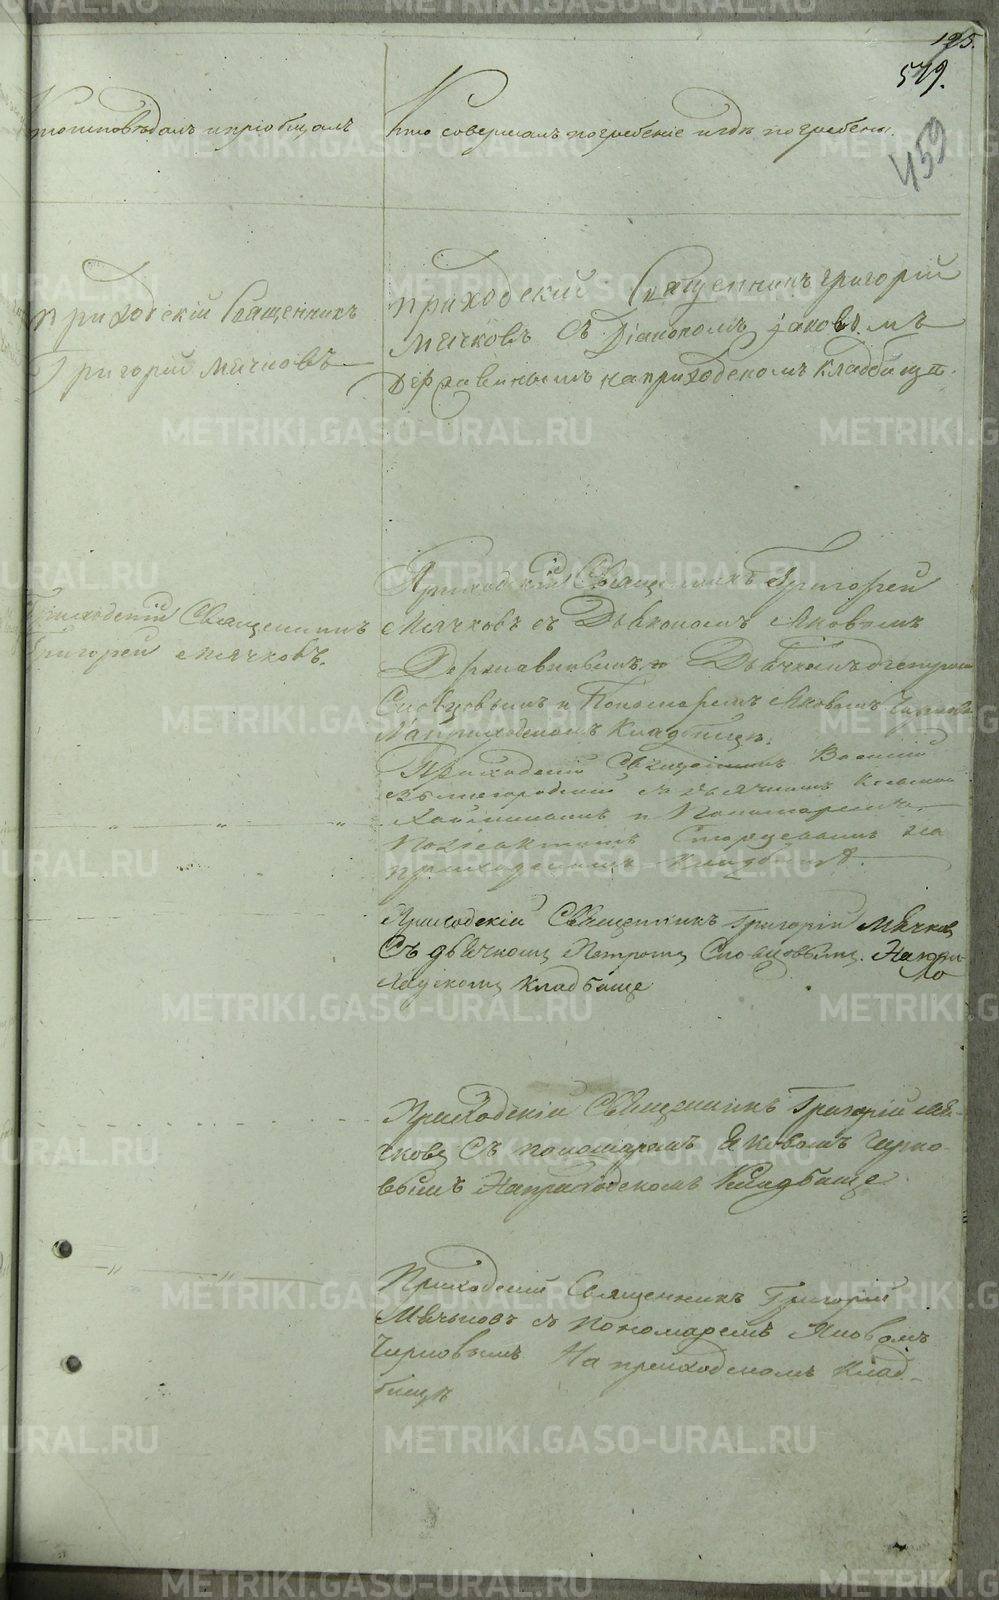 125.
519.
459
Кто исповѣдалъ и пріобщалъ
Кто совершалъ погребеніе и гдѣ погребены.
приходскій Священникъ
Григорій мячковъ
приходскій Священникъ григорій
мячковъ Съ Діакономъ іаковомъ
Державинымъ на приходскомъ кладбищѣ.
Приходскій Священникъ
Григорей Мячковъ.
Приходскій Священникъ Григорей
Мячковъ съ Дьякономъ Яковомъ
Державинымъ и Дьячкомъ
Словцовымъ и Пономаремъ Яковомъ
На приходскомъ Кладбищѣ.
Приходскій Священникъ Василій
съ дьячкомъ
и Пономаремъ
на
приходскомъ кладбищѣ.
Приходскій Священникъ Григорій Мячков
Съ дьячкомъ Петромъ Словцовымъ. На при
ходскомъ кладбище
Приходскій Священникъ Григорій мя-
чковъ Съ пономаремъ Яковомъ Черно-
вымъ На приходскомъ Кладбище
Приходскій Священникъ Григорій
Мячьковъ съ пономаремъ Яковомъ
Черновымъ На приходскомъ клад-
бищѣ
METRIKI.GASO-URAL.RU